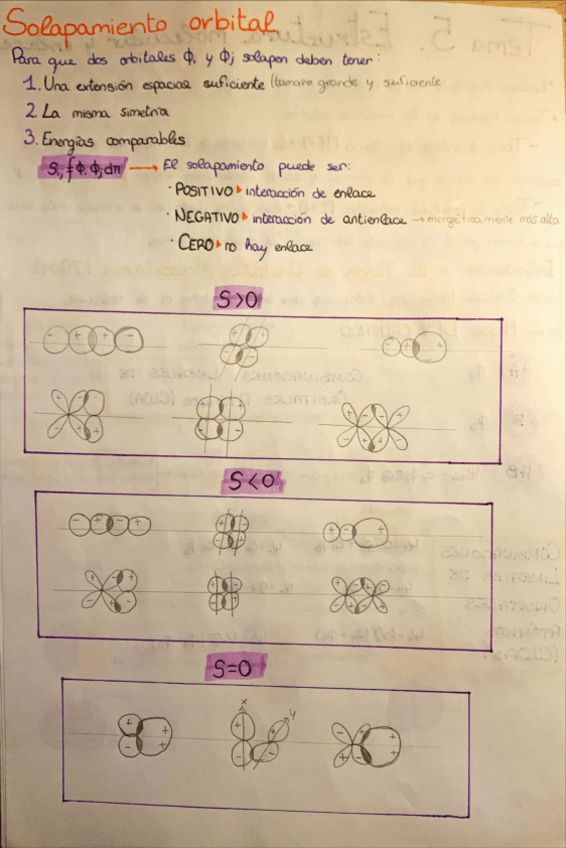 Solapamiento orbital
Para que dos orbitales ϕi y ϕj solapen deben tener:
1. Una extensión espacial suficiente (tamaño grande y suficiente
2. La misma simetría
3. Energías comparables
El solapamiento puede ser:
· POSITIVO ▸ interacción de enlace
· NEGATIVO ▸ interacción de antienlace → energéticamente más alta
· CERO ▸ no hay enlace
S>0
S<0
S=0
x
y